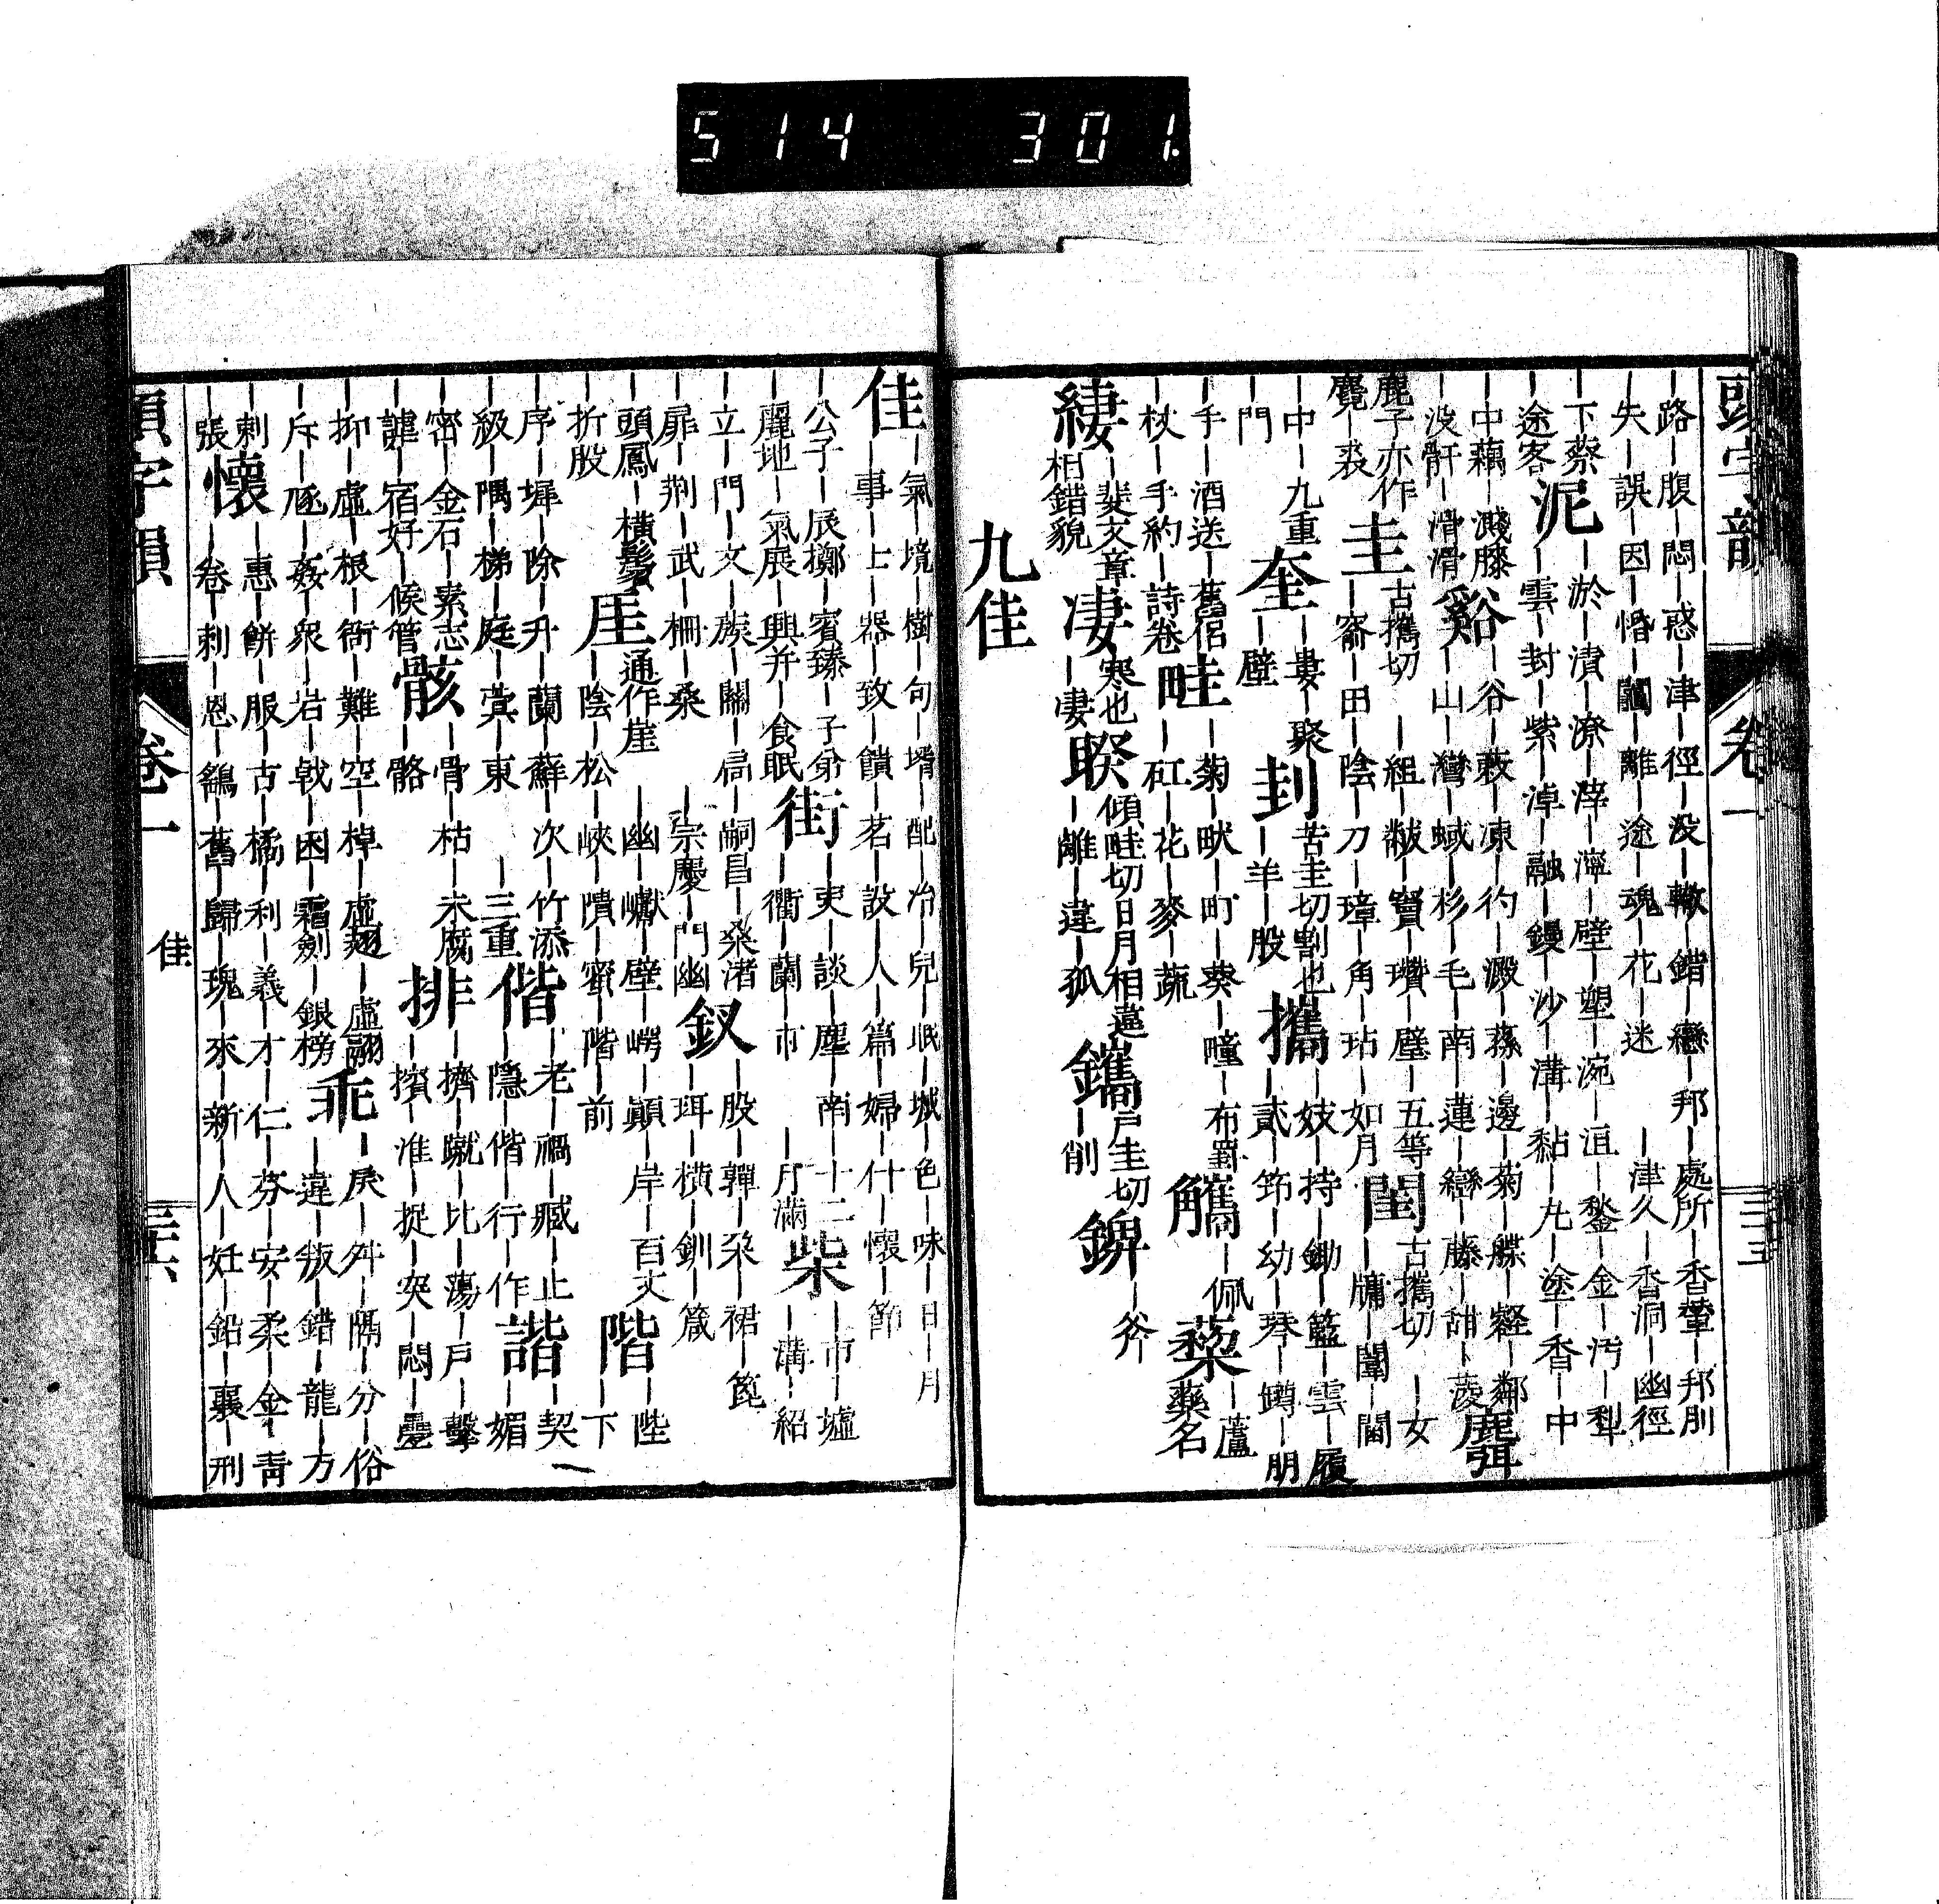 514 301
頭字韻
卷一
路｜腹｜悶｜惑｜津｜徑｜没｜轍｜錯｜戀｜邦｜處所｜香輦｜邦
失｜誤｜因｜惛｜關｜離｜途｜魂｜花｜迷　｜津久｜香洞｜幽徑
下蔡｜泥｜淤｜漬｜潦｜滓｜濘｜壁｜塑｜涴｜沍｜鏊｜金｜汚｜犁
途客｜雲｜封｜紫｜淖｜融｜鏝｜沙｜溝｜黏｜丸｜塗｜香｜中
中藕｜濺膝谿｜谷｜藪｜凍｜彴｜澱｜蓀｜邊｜菊｜艓｜壑｜鄰
没骭｜滑滑｜山｜灣｜蜮｜杉｜毛｜南｜蓮｜巒｜藤｜甜｜蔆麛
鹿子亦作圭古攜切｜組｜黻｜寶｜瓚｜璧｜五等閨古攜切｜女
麑｜裘｜窬｜田｜陰｜刀｜璋｜角｜玷｜如月｜牗｜闈｜閫
中｜九重奎｜婁｜聚刲苦圭切割也攜｜妓｜持｜鋤｜籃｜雲｜履
門｜壁｜羊｜股｜貳｜筇｜幼｜琴｜罇｜朋
手｜酒送｜舊侶畦｜菊｜畎｜町｜葵｜疃｜布罫觿｜佩蘂｜蘆
杖｜手約｜詩卷｜矼｜花｜麥｜蔬　藥名
緀｜斐文章相錯貌淒寒也｜淒睽傾畦切日月相違｜離｜違｜孤鑴戶圭切｜削錍｜斧
九佳
佳｜氣｜境｜樹｜句｜壻｜配｜冶｜兒｜岷｜城｜色｜味｜日｜月
｜事｜上｜器｜致｜饋｜茗｜設｜人｜篇｜婦｜什｜懷｜節
公子｜辰擲｜賓臻｜子弟街｜吏｜談｜塵｜南｜十二柴｜市｜墟
麗地｜氣展｜興并｜食眠｜衢｜蘭｜市｜月滿｜溝｜紹
立｜門｜文｜族｜關｜扃｜嗣昌｜桑渚釵｜股｜嚲｜桑｜裙｜篦
扉｜荆｜武｜柵｜桑　｜宗慶｜門幽｜珥｜橫｜釧｜箴
頭鳳｜橫鬢厓通作崖　｜幽｜巘｜壁｜崿｜顚｜岸｜百丈階｜陛
折股｜陰｜松｜峽｜隤｜蜜｜階｜前　｜下
序｜墀｜除｜升｜蘭｜蘇｜次｜竹添偕｜老｜禍｜臧｜止諧｜契
級｜隅｜梯｜庭｜蓂｜東　｜三重｜隱｜偕｜行｜作｜媚
密｜金石｜素志骸｜骨｜枯｜未腐排｜擠｜蹴｜比｜蕩｜戶｜擊
謔｜宿好｜候管｜骼｜擯｜淮｜捉｜突｜悶｜疊
抑｜虛｜根｜衙｜難｜空｜棹｜虛翅｜虛翮乖｜戾｜舛｜隔｜分｜俗
斥｜逐｜姦｜衆｜岩｜戟｜困｜霜劍｜銀榜｜違｜叛｜錯｜龍｜方
刺｜懷｜惠｜餅｜服｜古｜橘｜利｜義｜才｜仁｜芬｜安｜柔｜金｜靑
張｜卷｜刺｜恩｜鷁｜舊｜歸｜瑰｜來｜新｜人｜妊｜鉛｜襄｜刑
卷一
佳
三六